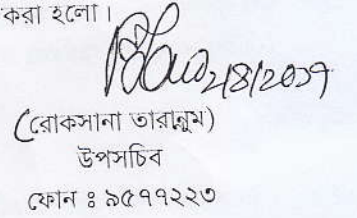 করা হলো।
২/৪/২০১৭
(রোকসানা তারান্নুম)
উপসচিব
ফোন ঃ ৯৫৭৭২২৩